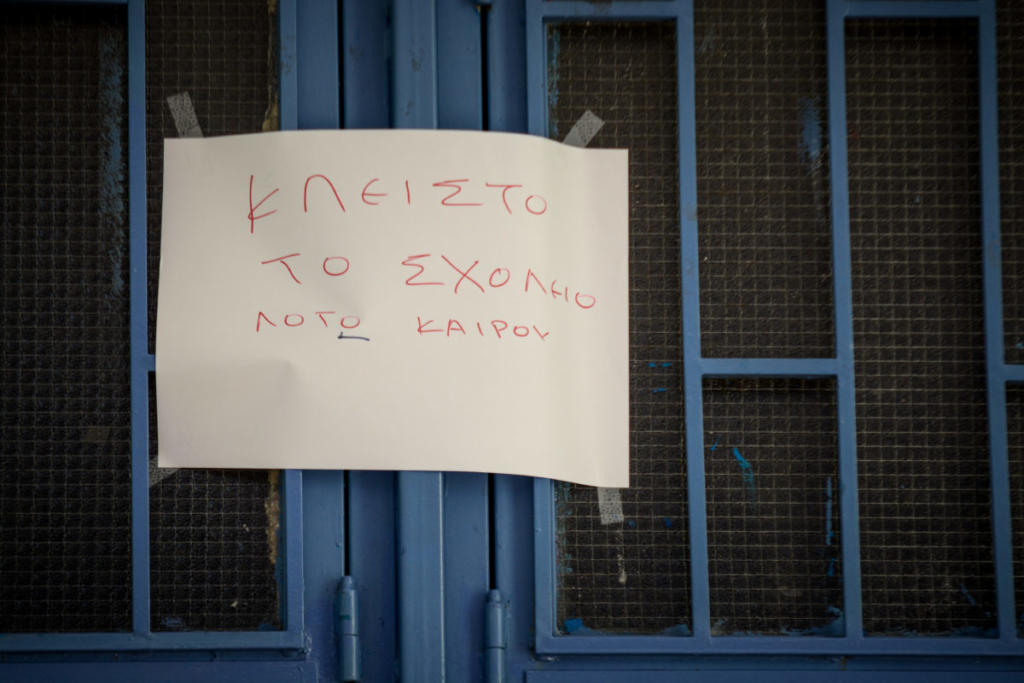 ΚΛΕΙΣΤΟ
ΤΟ ΣΧΟΛΕΙΟ
ΛΟΤΩ ΚΑΙΡΟΥ